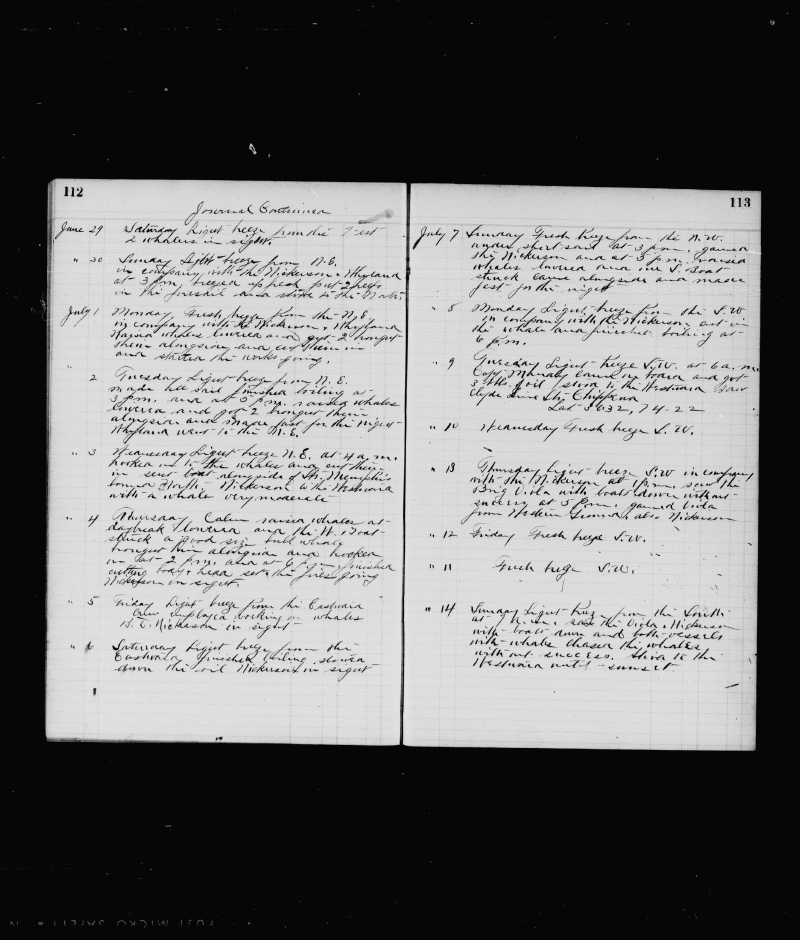 112
Journal Continued
June 29 Saturday Light breeze from the West
2 whalers in sight.
" 30 Sunday Light breeze from N.E.
in company with the Nickerson & Whyland
at 3 p.m. breezed up fresh put 2 reefs
in the foresail and stood to the
July 1 Monday Fresh breeze from the N.E.
in company with the Nickerson, Whyland
Raised whales lowered and got 2 brought
them alongside and cut them in
and started the works going.
" 2 Tuesday Light breeze from N.E.
made all sail finished boiling at
3 p.m. and at 5 p.m. raised whales
lowered and got 2 brought them
alongside and made fast for the night
Whyland went to the N.E.
" 3 Wednesday Light breeze N.E. at 4 a.m.
hooked on to the whales and cut them
in sent boat alongside of Str. Memphis
bound North. Nickerson to the Westward
with a whale very moderate
" 4 Thursday Calm raised whales at
daybreak lowered and the W. Boat
struck a good size bull whale
brought him alongside and hooked
on at 2 p.m. and at 6 p.m. finished
cutting body & head set the fires going
Nickerson in sight.
" 5 Friday Light breeze from the Eastward
Crew employed working on whales
Nickerson in sight
" 6 Saturday Light breeze from the
Eastward finished boiling stowed
down the oil Nickerson in sight
113
July 7 Sunday Fresh breeze from the N.W.
under short sail at 3 p.m. gained
the Nickerson and at 5 p.m. raised
whales lowered and one S. Boat
struck came alongside and made
fast for the night
" 8 Monday Light breeze from the S.W
in company with the Nickerson cut in
the whale and finished boiling at
6 p.m.
" 9 Tuesday Light breeze S.W. at 6 a.m.
Capt. came on board and got
3 bbls. of oil stood to the Westward Saw
Clyde Line Str. Chippewa
Lat 3632, 74-22
" 10 Wednesday Fresh breeze S.W.
" 13 Thursday Light breeze S.W in company
with the Nickerson at 1 p.m. saw the
Brig Viola with boats down without
success at 5 p.m. gained Viola
from Western Ground, also Nickerson
" 12 Friday Fresh breeze S.W.
" 11 Fresh breeze S.W.
" 14 Sunday Light breeze from the South
at 7 a.m. saw the Viola & Nickerson
with boats down and both vessels
with whale chased the whales
without success. Stood to the
Westward until sunset